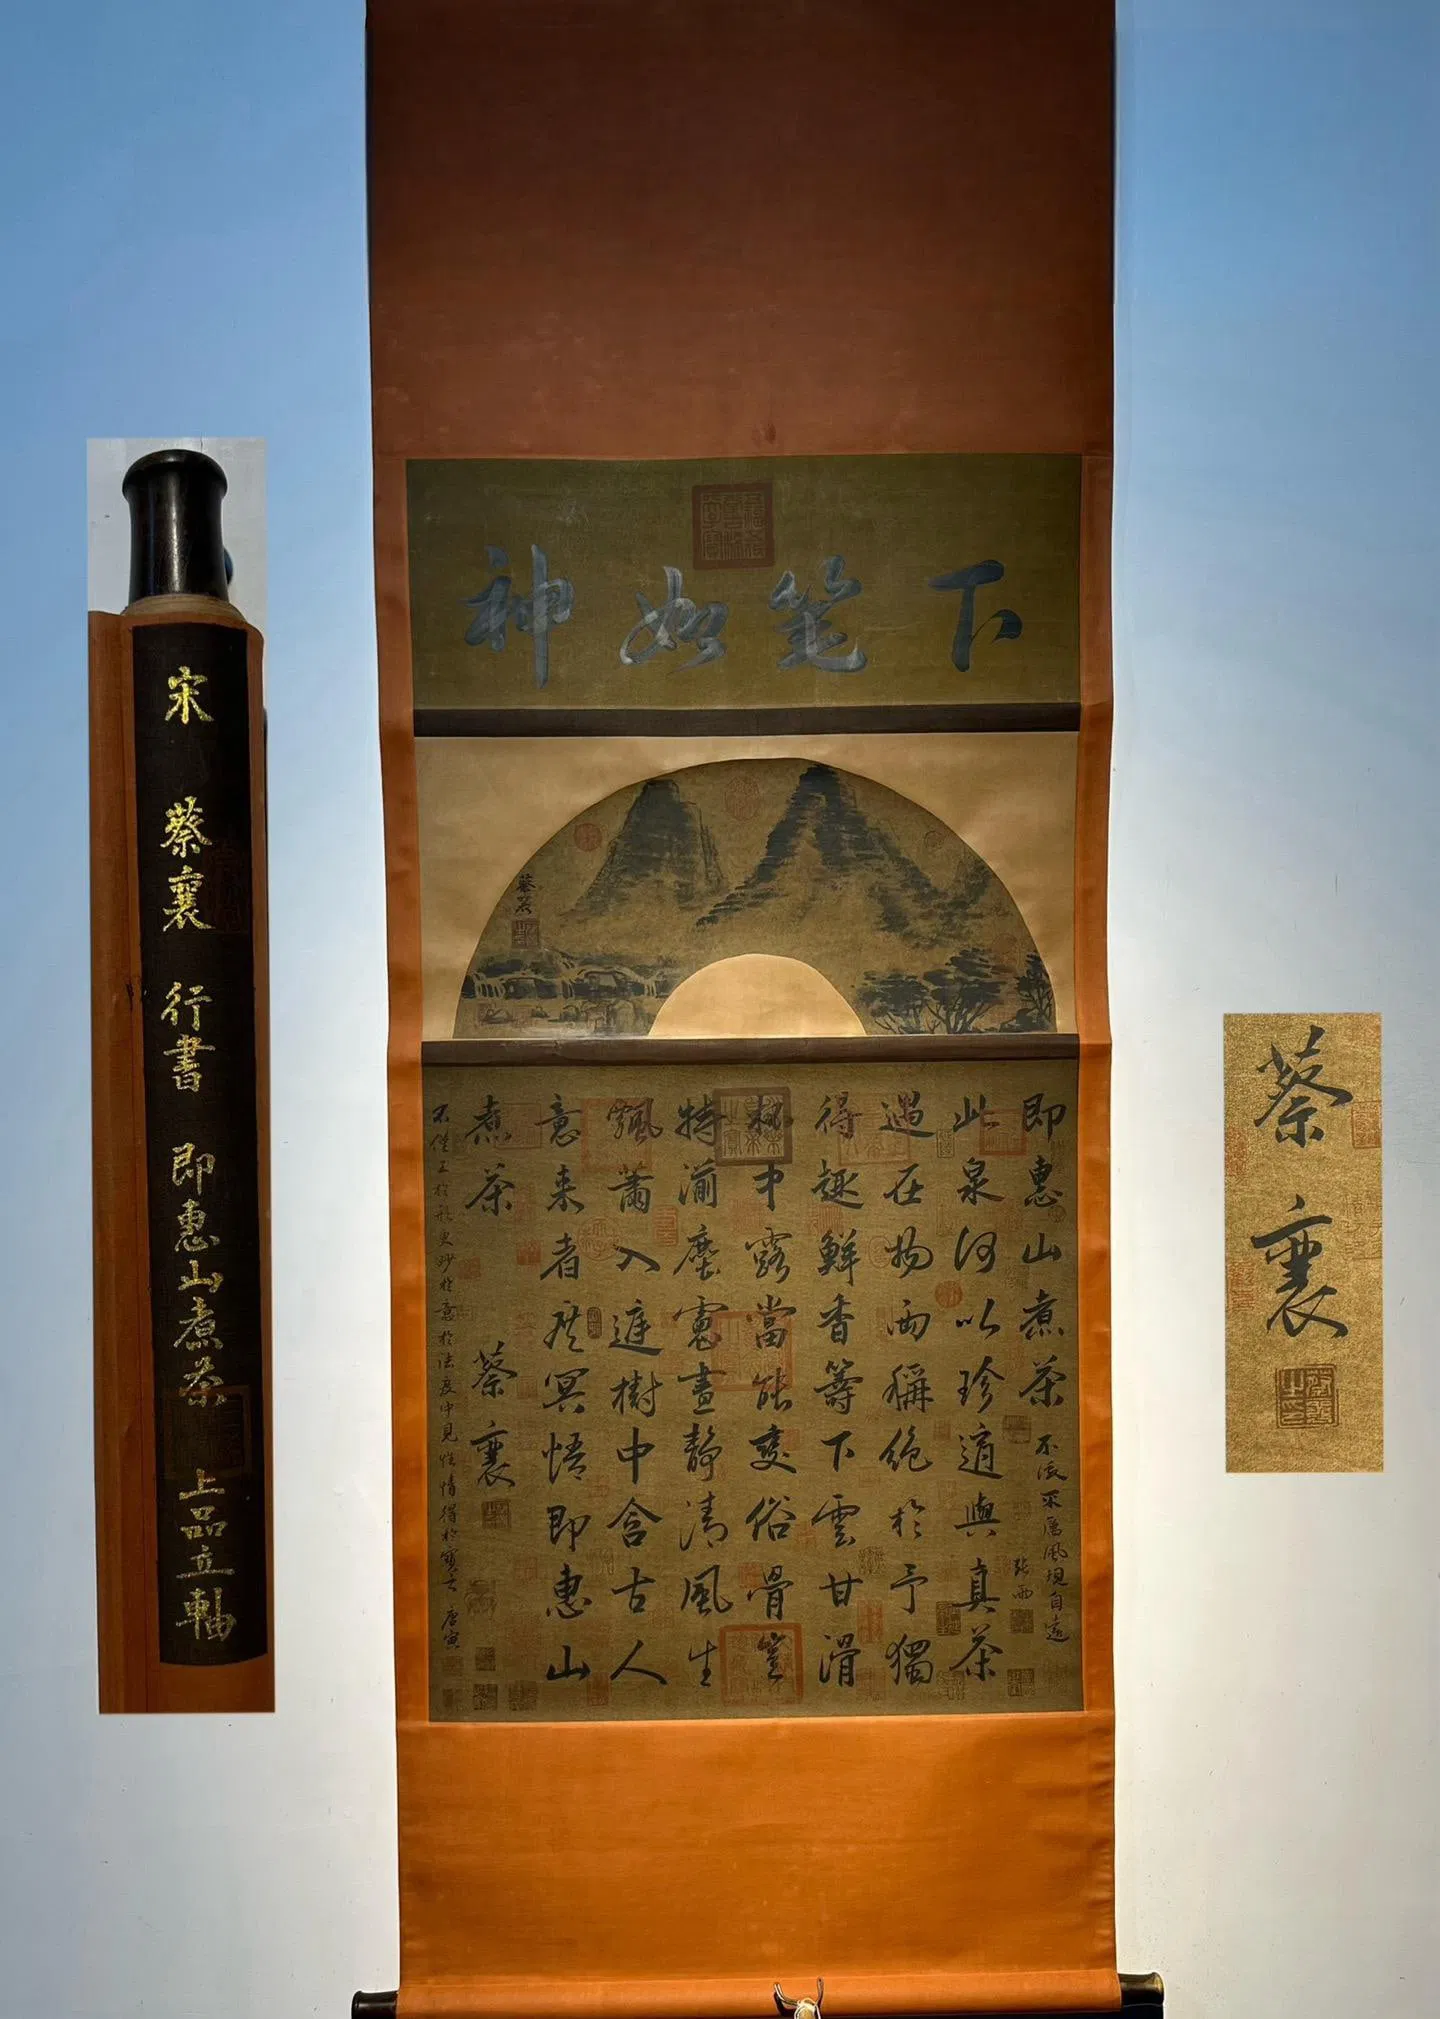 宋 蔡襄 行書 即惠山煮茶 上品立軸
下笔如神
蔡襄
即惠山煮茶
不激不厲風規自遠
張雨
此泉何以珍適與真茶
遇在物兩稱絕於予獨
得趣鮮香籌下雲甘滑
杯中露當能變俗骨豈
特湔塵慮晝靜清風生
飄蕭入庭樹中含古人
意來者庶冥悟即惠山
煮茶 蔡襄
不僅工於形更妙於意於法度中見性情得於 唐寅
蔡襄